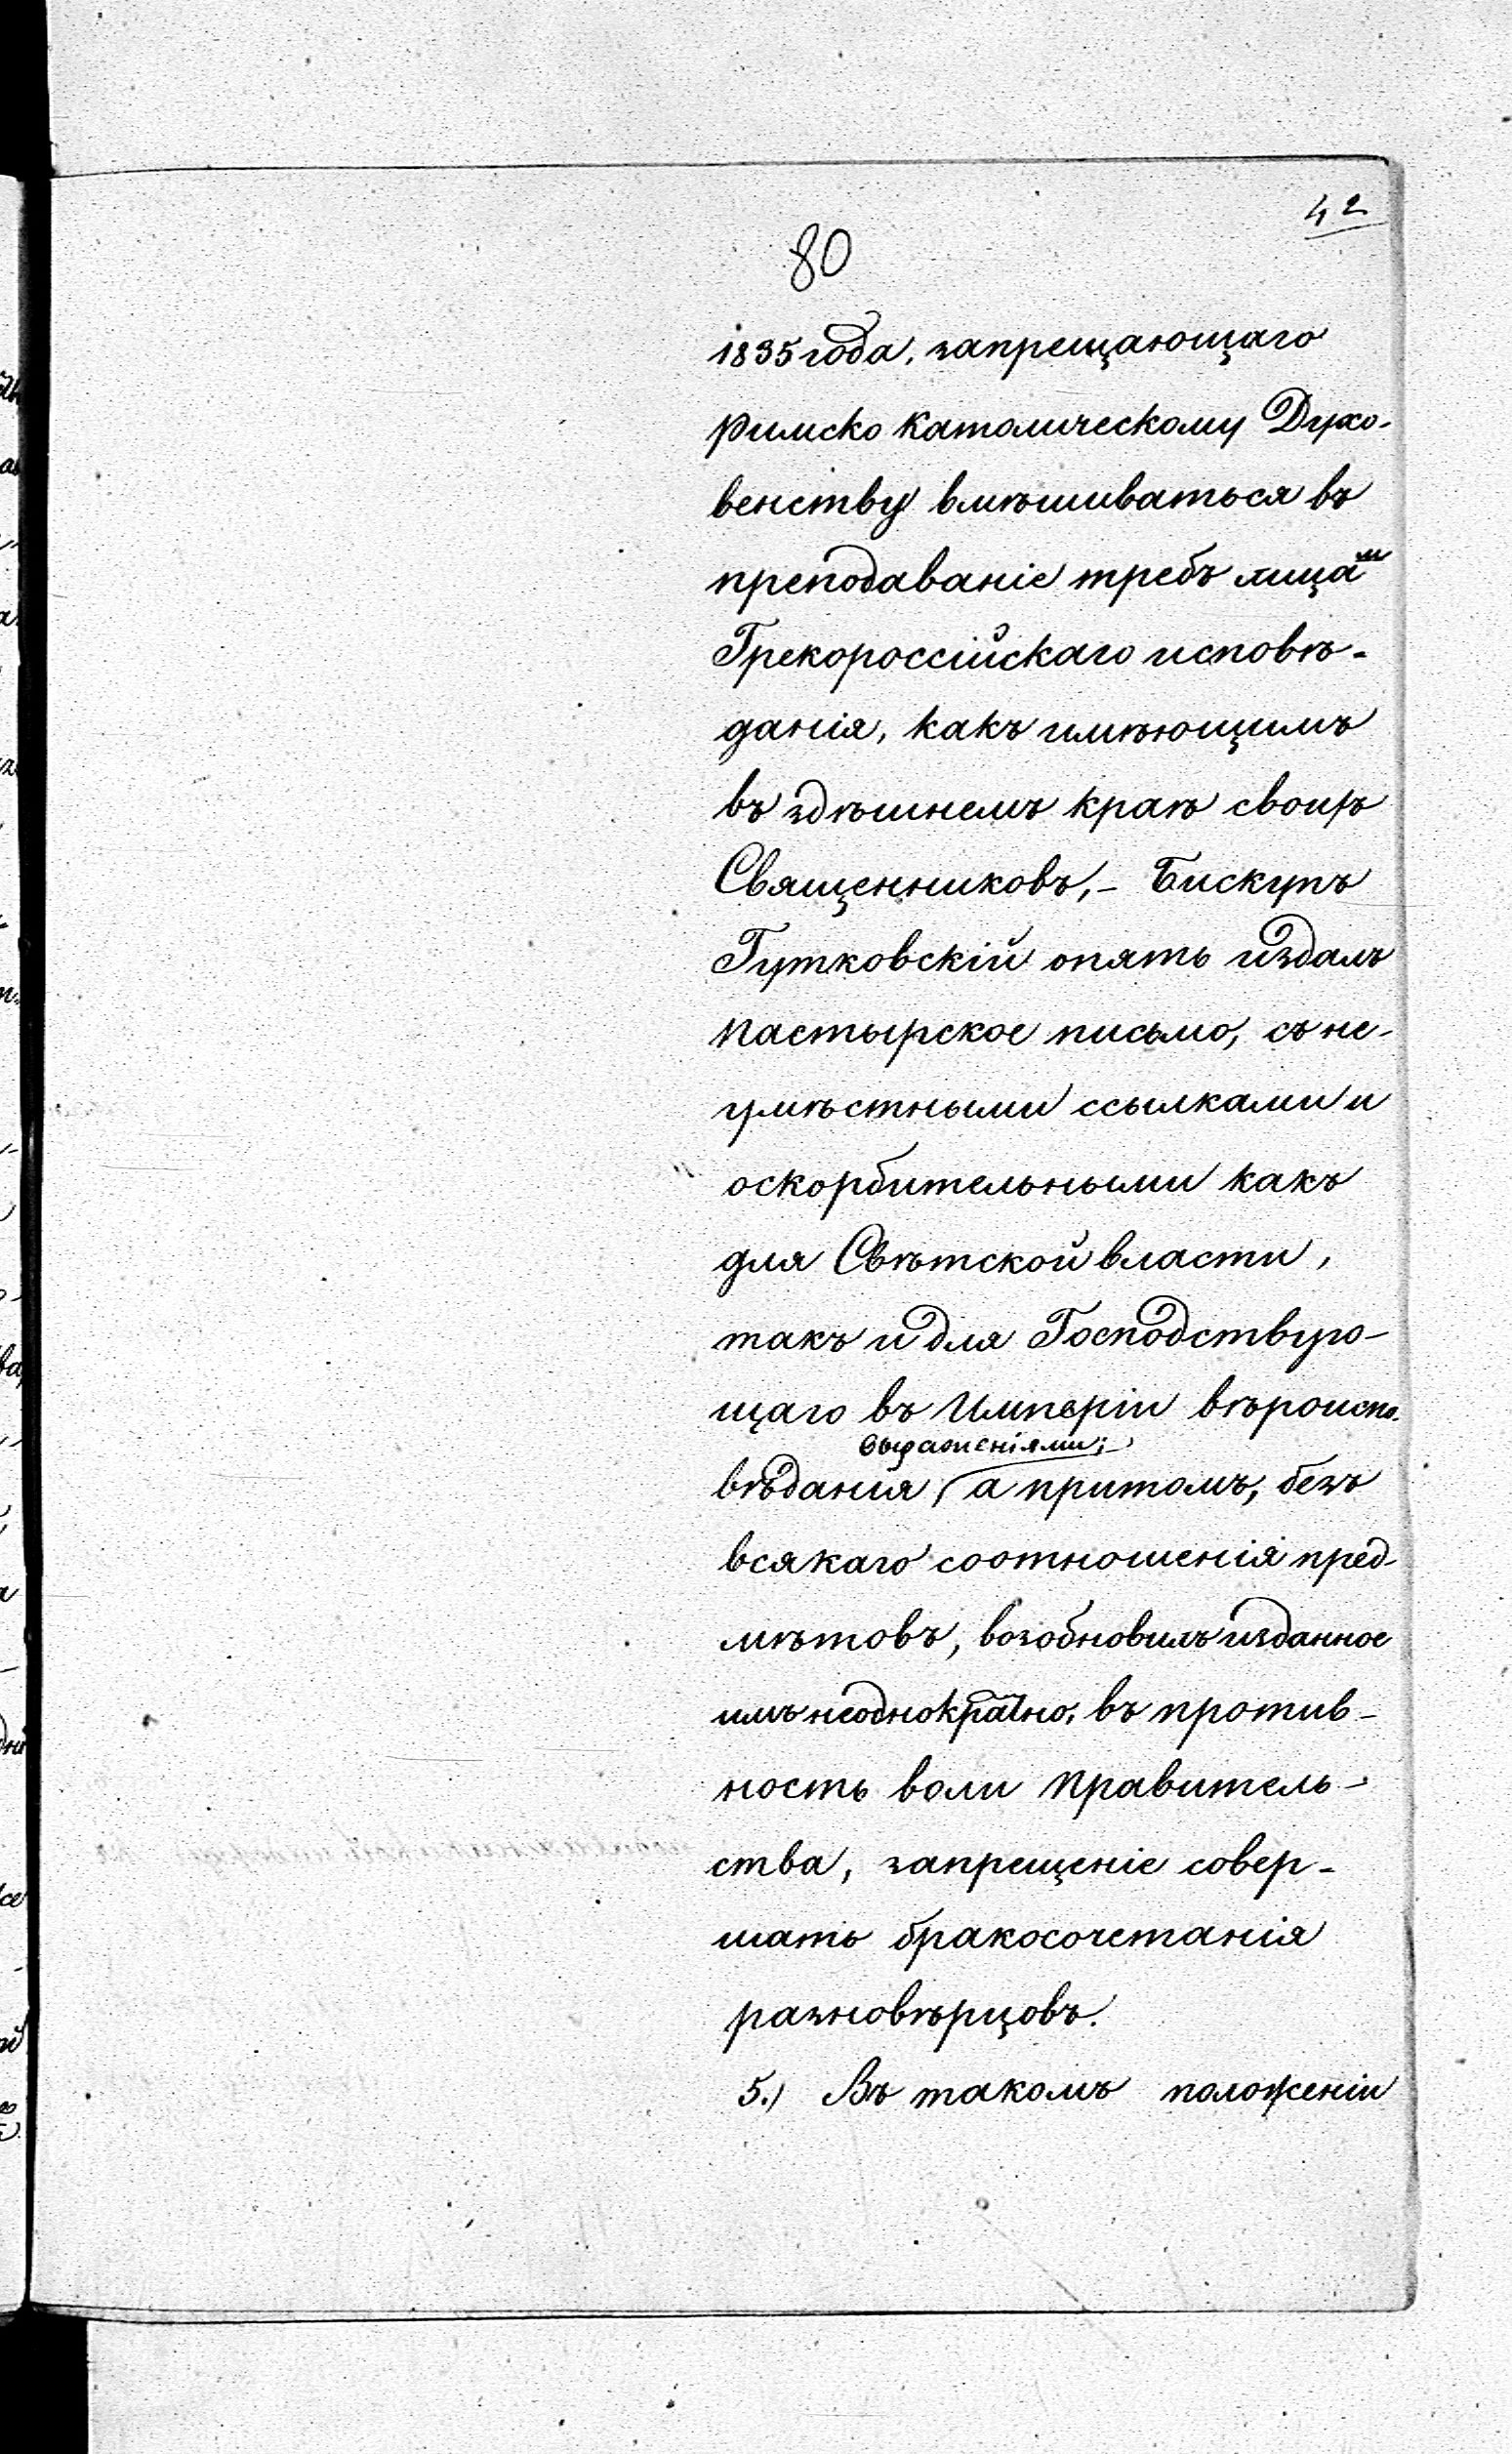 42
80
1835 года, запрещающаго
Римско Католическому Духо-
венству вмѣшиваться въ
преподаваніе требъ лицам
Грекороссійскаго исповѣ-
данія, какъ имѣющимъ
въ здѣшнемъ краѣ своихъ
Священниковъ,- Бискупъ
Гутковскій опять издалъ
пастырское письмо, съ не-
умѣстными ссылками и
оскорбительными какъ
для Свѣтской власти,
такъ и для Господствую-
щаго въ Имперіи вѣроиспо-
выраженіями;
вѣданія, а притомъ, безъ
всякаго соотношенія пред-
мѣтовъ, возобновилъ изданное
имъ неоднократно, въ против-
ность воли Правитель-
ства, запрещеніе совер-
шать бракосочетанія
разновѣрцовъ.
5.) Въ такомъ положеніи